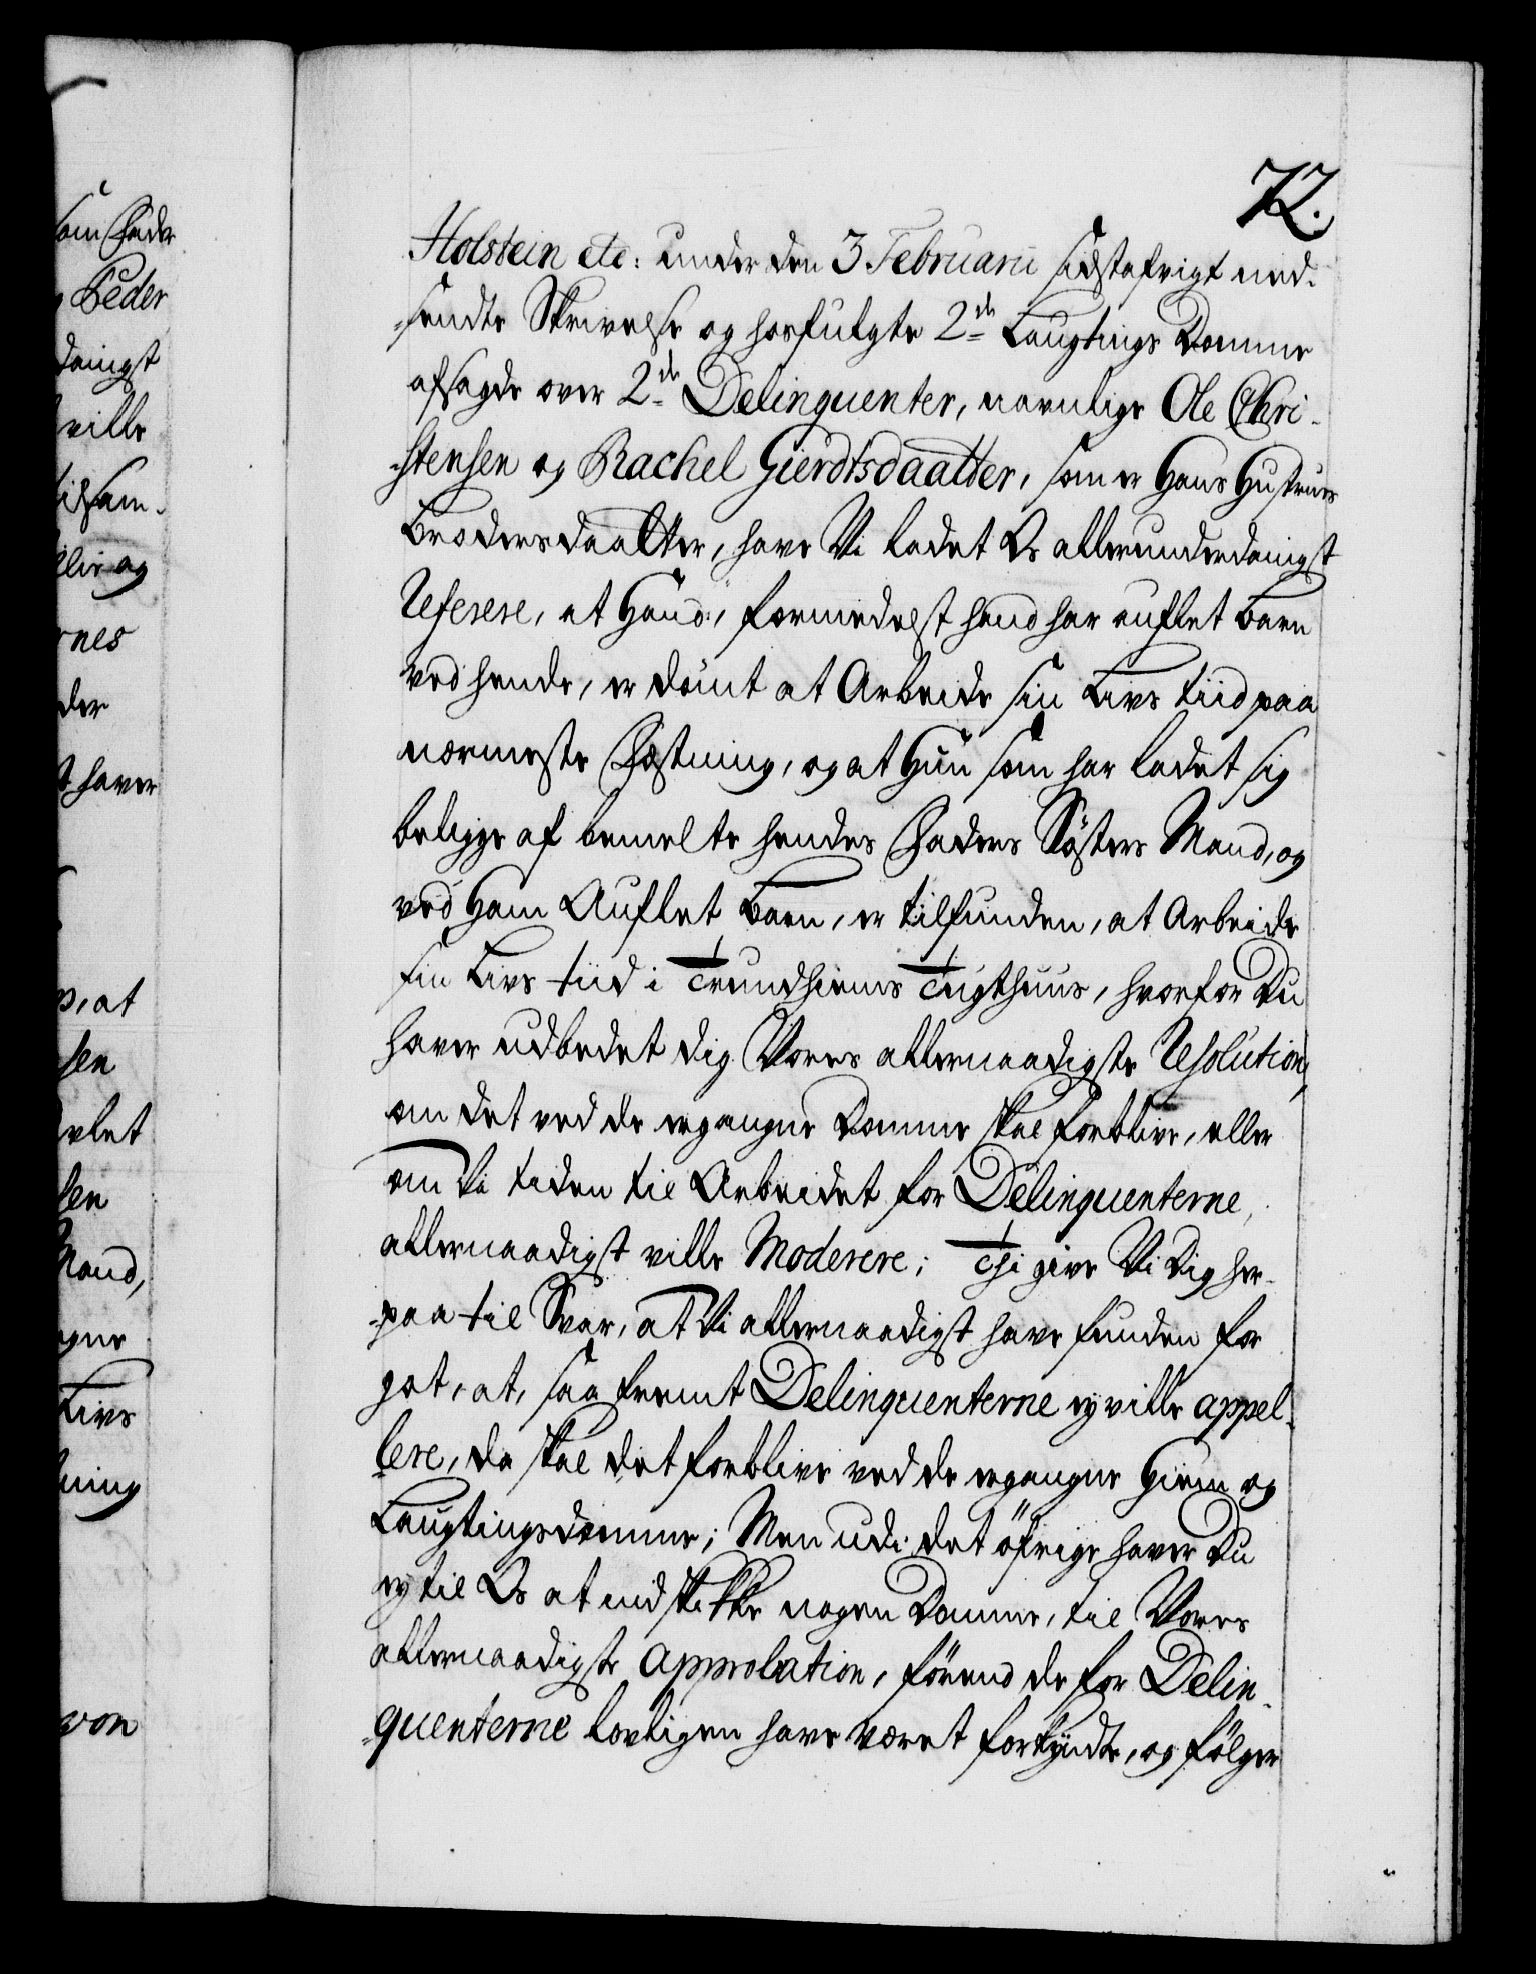 72.
Holstein etc: under den 3 Februarii sidstafvigt ned-
-sendte Skrivelse og hosfulgte 2de Laugtings Domme
afsagde over 2de Delinquenter, navnlige Ole Chri-
-stensen og Rachel Gierdtsdaatter, som er Hans Hustrues
Brodersdaatter, have Vi ladet Os allerunderdanigst
Referere, at Hand, formedelst hand har auflet Barn
ved hende, er dömt at Arbeide sin Livs tiid paa
nærmeste Fæstning, og at Hun som har ladet sig
beligge af bemelte hendes Faders Sösters Mand, og
ved Ham Auflet Barn, er tilfunden, at Arbeide
sin Livs tiid i Trundhiems Tugthuus, hvorfor Du
haver udbedet dig Vores allernaadigste Resolution,
om det ved de ergangne Domme skal forblive, eller
om Vi tiden til Arbeidet for Delinquenterne,
allernaadigst ville Moderere; Thi give Vi Dig her-
-paa til Svar, at Vi allernaadigst have funden for
got, at, saa fremt Delinquenterne ey ville appel-
lere, da skal det forblive ved de ergangne Hiem og
Laugtingsdomme; Men udi det öfrige haver Du
ey til Os at indskikke nogen Domme, til Vores
allernaadigste Approbation, förend de for Delin-
-quenterne lovligen have været forkyndte, og fölger
som Fader
Peder
danigst
ville
og
nes
der
haver
at
sen
vlet
sen
Mand,
gne
Livs
ning
von